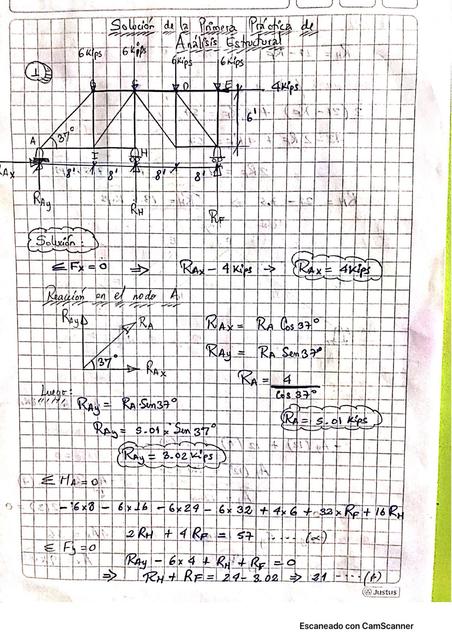 Solución de la Primera Práctica de
Análisis Estructural
6Kips 6Kips 6Kips 6Kips
1
B G D E 4Kips
6'
A 37° I H
RAx 8' 8' 8' 8'
RAy RH RF
Solución:
≤ Fx = 0 ⇒ RAx - 4Kips → RAx = 4Kips
Reacción en el nodo A
RAy RA
37° RAx
RAx = RA Cos 37°
RAy = RA Sen 37°
RA = 4 / Cos 37°
RA = 5.01 Kips
Luego:
RAy = RA Sin 37°
RAy = 5.01 x Sen 37°
RAy = 3.02 Kips
≤ HA = 0
-6x8 - 6x16 - 6x24 - 6x32 + 4x6 + 32xRF + 16RH
2RH + 4RF = 57 ..... (α)
≤ Fy = 0
RAy - 6x4 + RH + RF = 0
⇒ RH + RF = 24 - 3.02 ⇒ 21 .... (β)
Justus
Escaneado con CamScanner